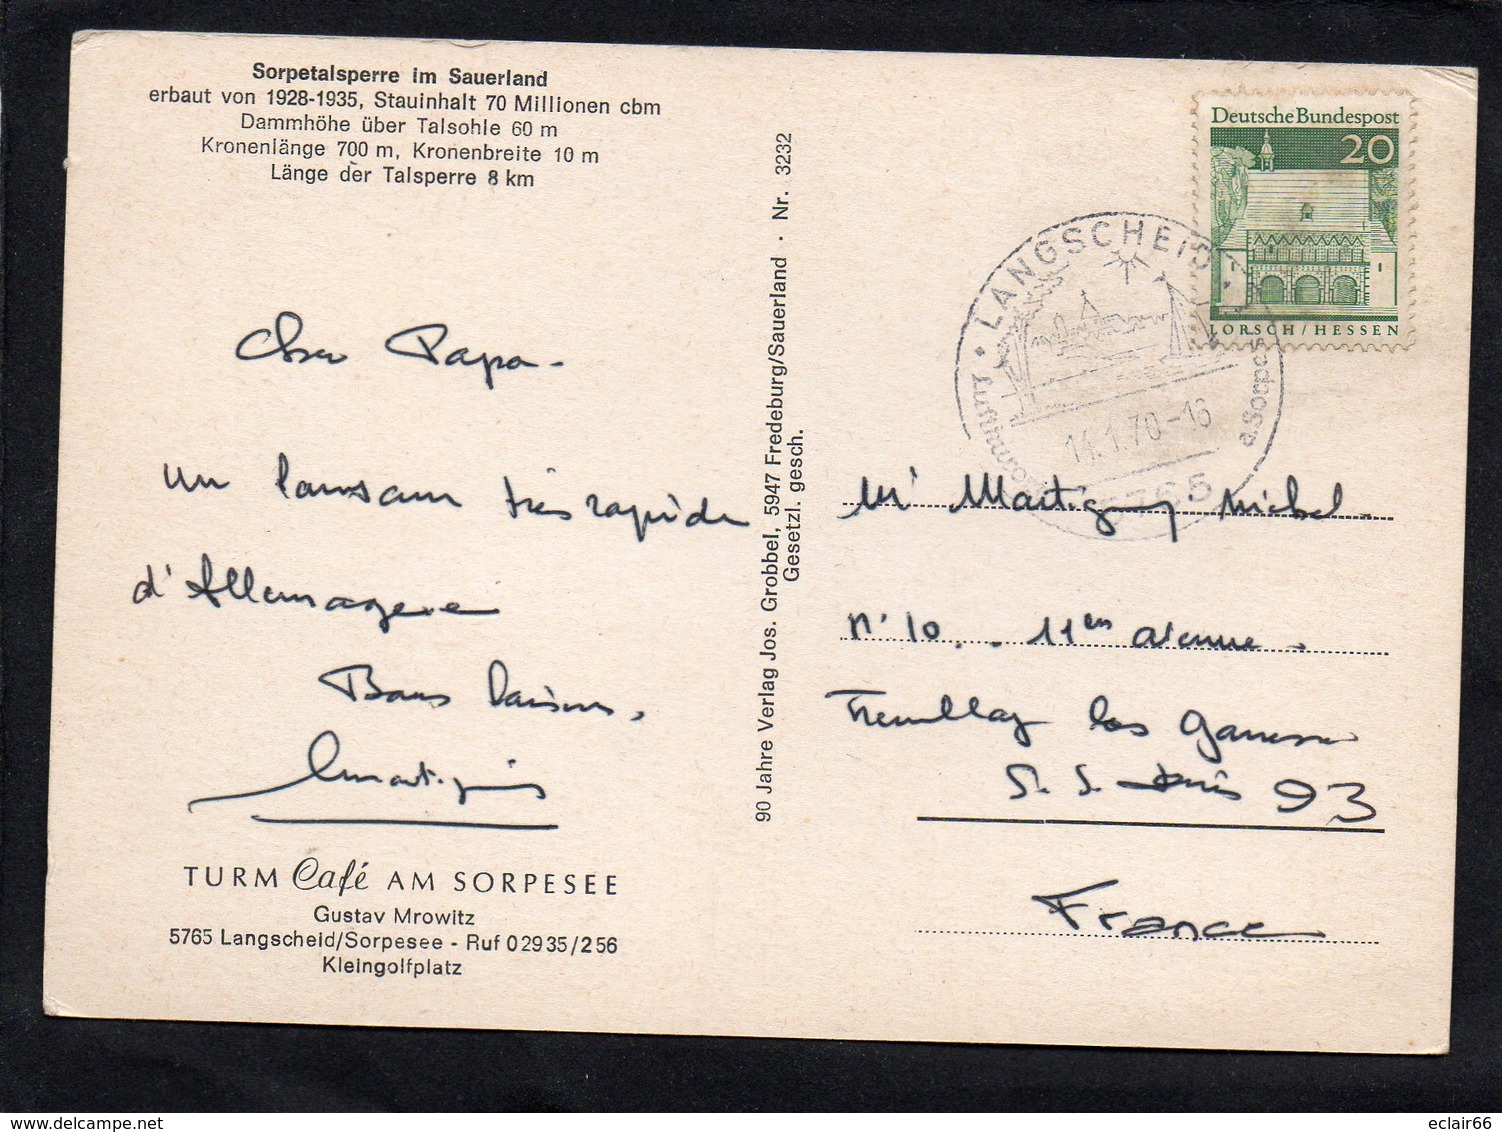 Sorpetalsperre im Sauerland
erbaut von 1928-1935, Stauinhalt 70 Millionen cbm
Dammhöhe über Talsohle 60 m
Kronenlänge 700 m, Kronenbreite 10 m
Länge der Talsperre 8 km
Cher Papa -
un très rapide
d'Allemagne
Bons baisers.
TURM Café AM SORPESEE
Gustav Mrowitz
5765 Langscheid/Sorpesee - Ruf 02935/256
Kleingolfplatz
90 Jahre Verlag Jos. Grobbel, 5947 Fredeburg/Sauerland · Nr. 3232
Gesetzl. gesch.
Deutsche Bundespost
20
LORSCH/HESSEN
LANGSCHEID
14.1.70-16
5765
Mr Martigny Michel.
N° 10 .. 11em avenue.
Tremblay les Gonesse
S. S. Denis 93
France
eclair66